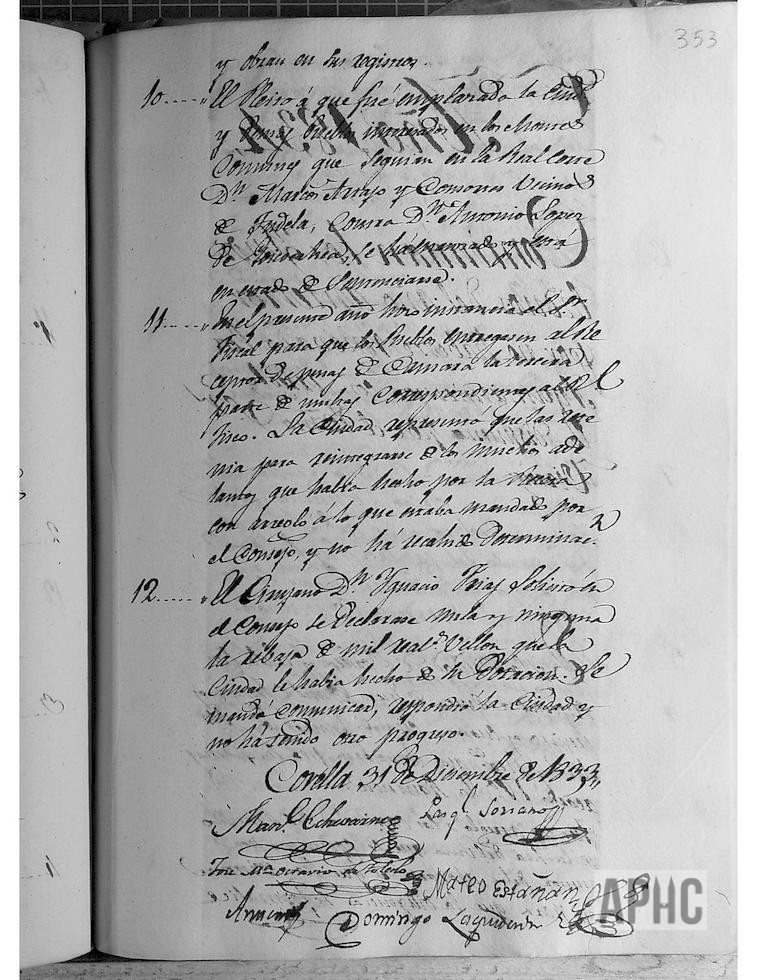 353
y obran en sus registros.
10.....,, El Pleito á que fué emplazada la Ciudad
y demas Pueblos interesados en los Montes
Comunes que seguian en la Real Corte
Dn. Marcos Arrajo y Consortes Vecinos
de Tudela, contra Dn. Antonio Lopez
de, se há y está
en estado de Sentenciarse.
11.....,, En el presente año hizo instancia el Sr.
Fiscal para que los Pueblos entregasen al Re
ceptor de penas de Camara la tercera
parte de multas correspondientes al Rl
Fisco. La Ciudad representó que las rete
nia para reintegrarse de los muchos ade
lantos que habia hecho por la
con arreglo á lo que estaba mandado por
el Consejo, y no há recahido Determinacn.
12.....,, El Cirujano Dn. Ygnacio Frias Solicitó en
el Consejo se Declarase nula y ninguna
la rebaja de mil reals. Vellon que la
Ciudad le habia hecho de su Dotacion. Se
mandó comunicar, respondió la Ciudad y
no há tenido otro progreso.
Corella 31 de Diciembre de 1833,,
Manl. Echevarria
Pasql. Soriano
José Ma. Octavio de Toledo
Mateo Estañan
Domingo
APHC